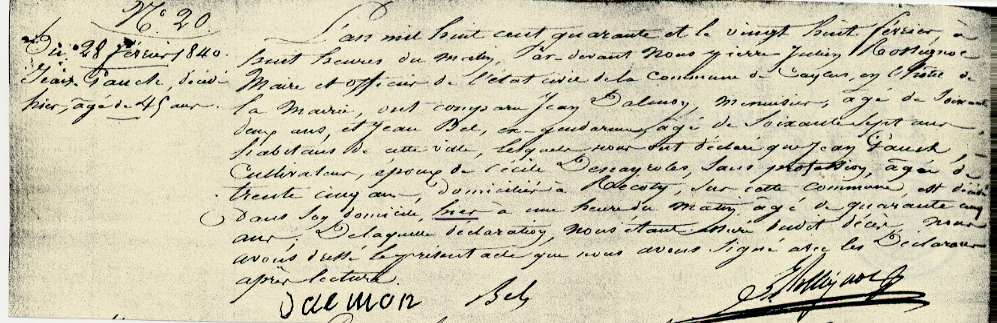 N° 20.
Du 28 février 1840.
Jean Gauch, décédé
hier, âgé de 45 ans.
L'an mil huit cent quarante et le vingt huit février, à
huit heures du matin, Par devant nous pierre Julien
Maire et officier de l'état civil de la Commune de Caylus, en l'hôtel de
la Mairie, ont comparu Jean Dalmon, menuisier, âgé de Soixante
deux ans, et Jean Bel, ex-gendarme, âgé de Soixante Sept ans,
habitans de cette ville, lesquels nous ont déclaré que Jean Gauch,
Cultivateur, époux de Cécile Desmyroles, Sans profession, âgée de
trente cinq ans, domiciliés à Recoty, sur cette commune, est décédé
dans son domicile, hier à une heure du matin, âgé de quarante cinq
ans. De laquelle déclaration, nous étant assuré dudit décès, nous
avons dressé le présent acte que nous avons signé avec les Déclarans
après lecture.
Dalmon Bel